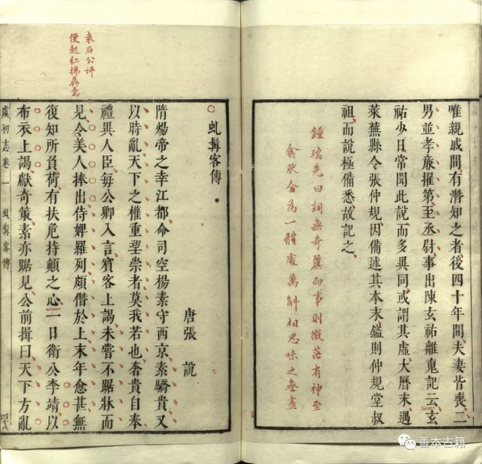 唯親戚間有潛知之者後四十年間夫妻皆喪二
男並孝廉擢第至丞尉事出陳玄祐離魂記云玄
祐少日常聞此說而多異同或謂其虛大曆末遇
萊蕪縣令張仲規因備述其本末鎰則仲規堂叔
祖而說極備悉故記之
鍾瑞先曰詞無奇麗而事則微茫有神至
翕合為一體處萬斛相思味之無盡
虬髯客傳
唐張說
隋煬帝之幸江都命司空楊素守西京素驕貴又
以時亂天下之權重望崇者莫我若也奢貴自奉
禮異人臣每公卿入言賓客上謁未嘗不踞牀而
見令美人捧出侍婢羅列頗僭於上末年愈甚無
復知所負荷有扶危持顛之心一日衛公李靖以
布衣上謁獻奇策素亦踞見公前揖曰天下方亂
袁石公評
便起紅拂
虞初志卷一 虬髯客傳
善本古籍